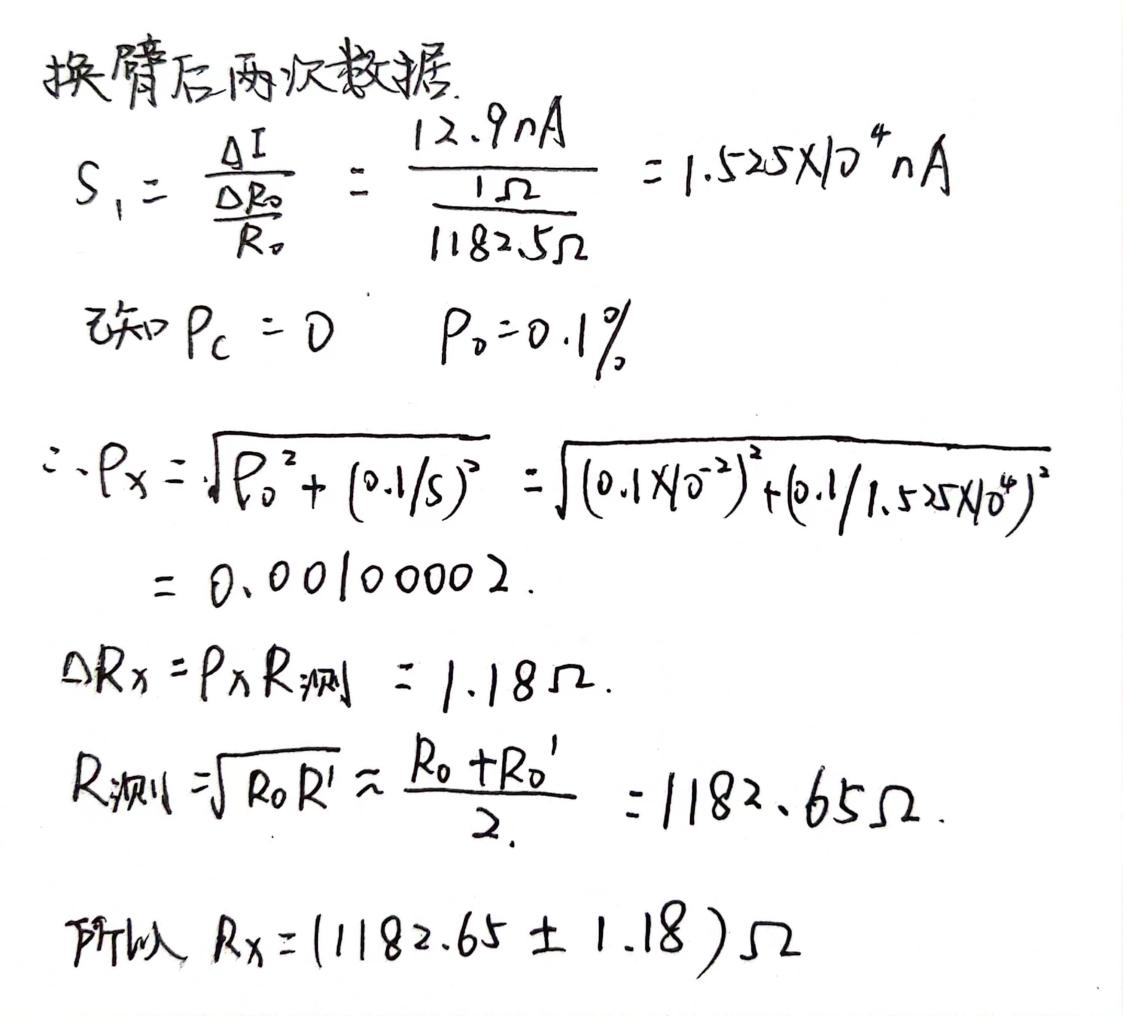 换臂后两次数据.
S₁ = ΔI / (ΔR₀ / R₀) = 12.9nA / (1Ω / 1182.5Ω) = 1.525×10⁴nA
已知 ρc = 0 ρ₀ = 0.1%
∴ ρx = √(ρ₀² + (0.1/S)²) = √((0.1×10⁻²)² + (0.1/1.525×10⁴)²)
= 0.00100002.
ΔRx = ρx R测 = 1.18Ω.
R测 = √(R₀R') ≈ (R₀ + R₀') / 2. = 1182.65Ω.
所以 Rx = (1182.65 ± 1.18) Ω